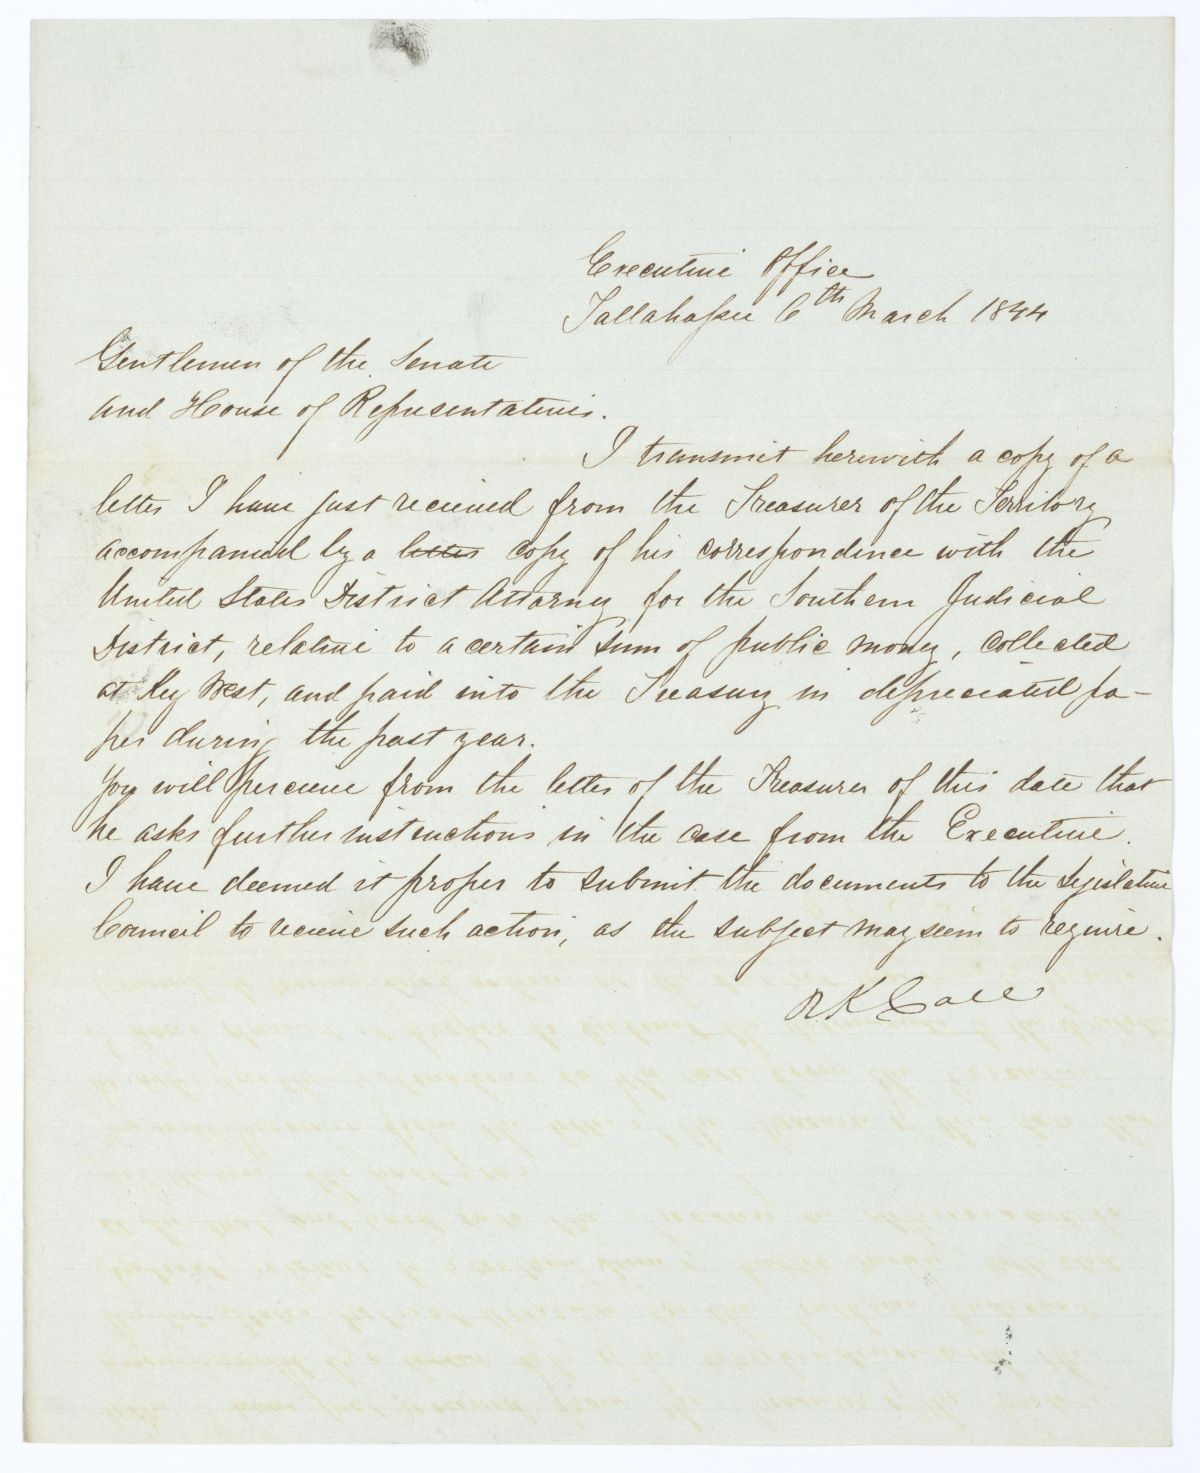 Executive Office
Tallahassee 6th March 1844
Gentlemen of the Senate
and House of Representatives.
I transmit herewith a copy of a
letter I have just received from the Treasurer of the Territory
accompanied by a letter copy of his correspondence with the
United States District Attorney for the Southern Judicial
District, relative to a certain sum of public money, collected
at Key West, and paid into the Treasury in depreciated pa-
per during the past year.
You will perceive from the letter of the Treasurer of this date that
he asks further instructions in the case from the Executive.
I have deemed it proper to submit the documents to the Legislative
Council to receive such action, as the subject may seem to require.
R K Call